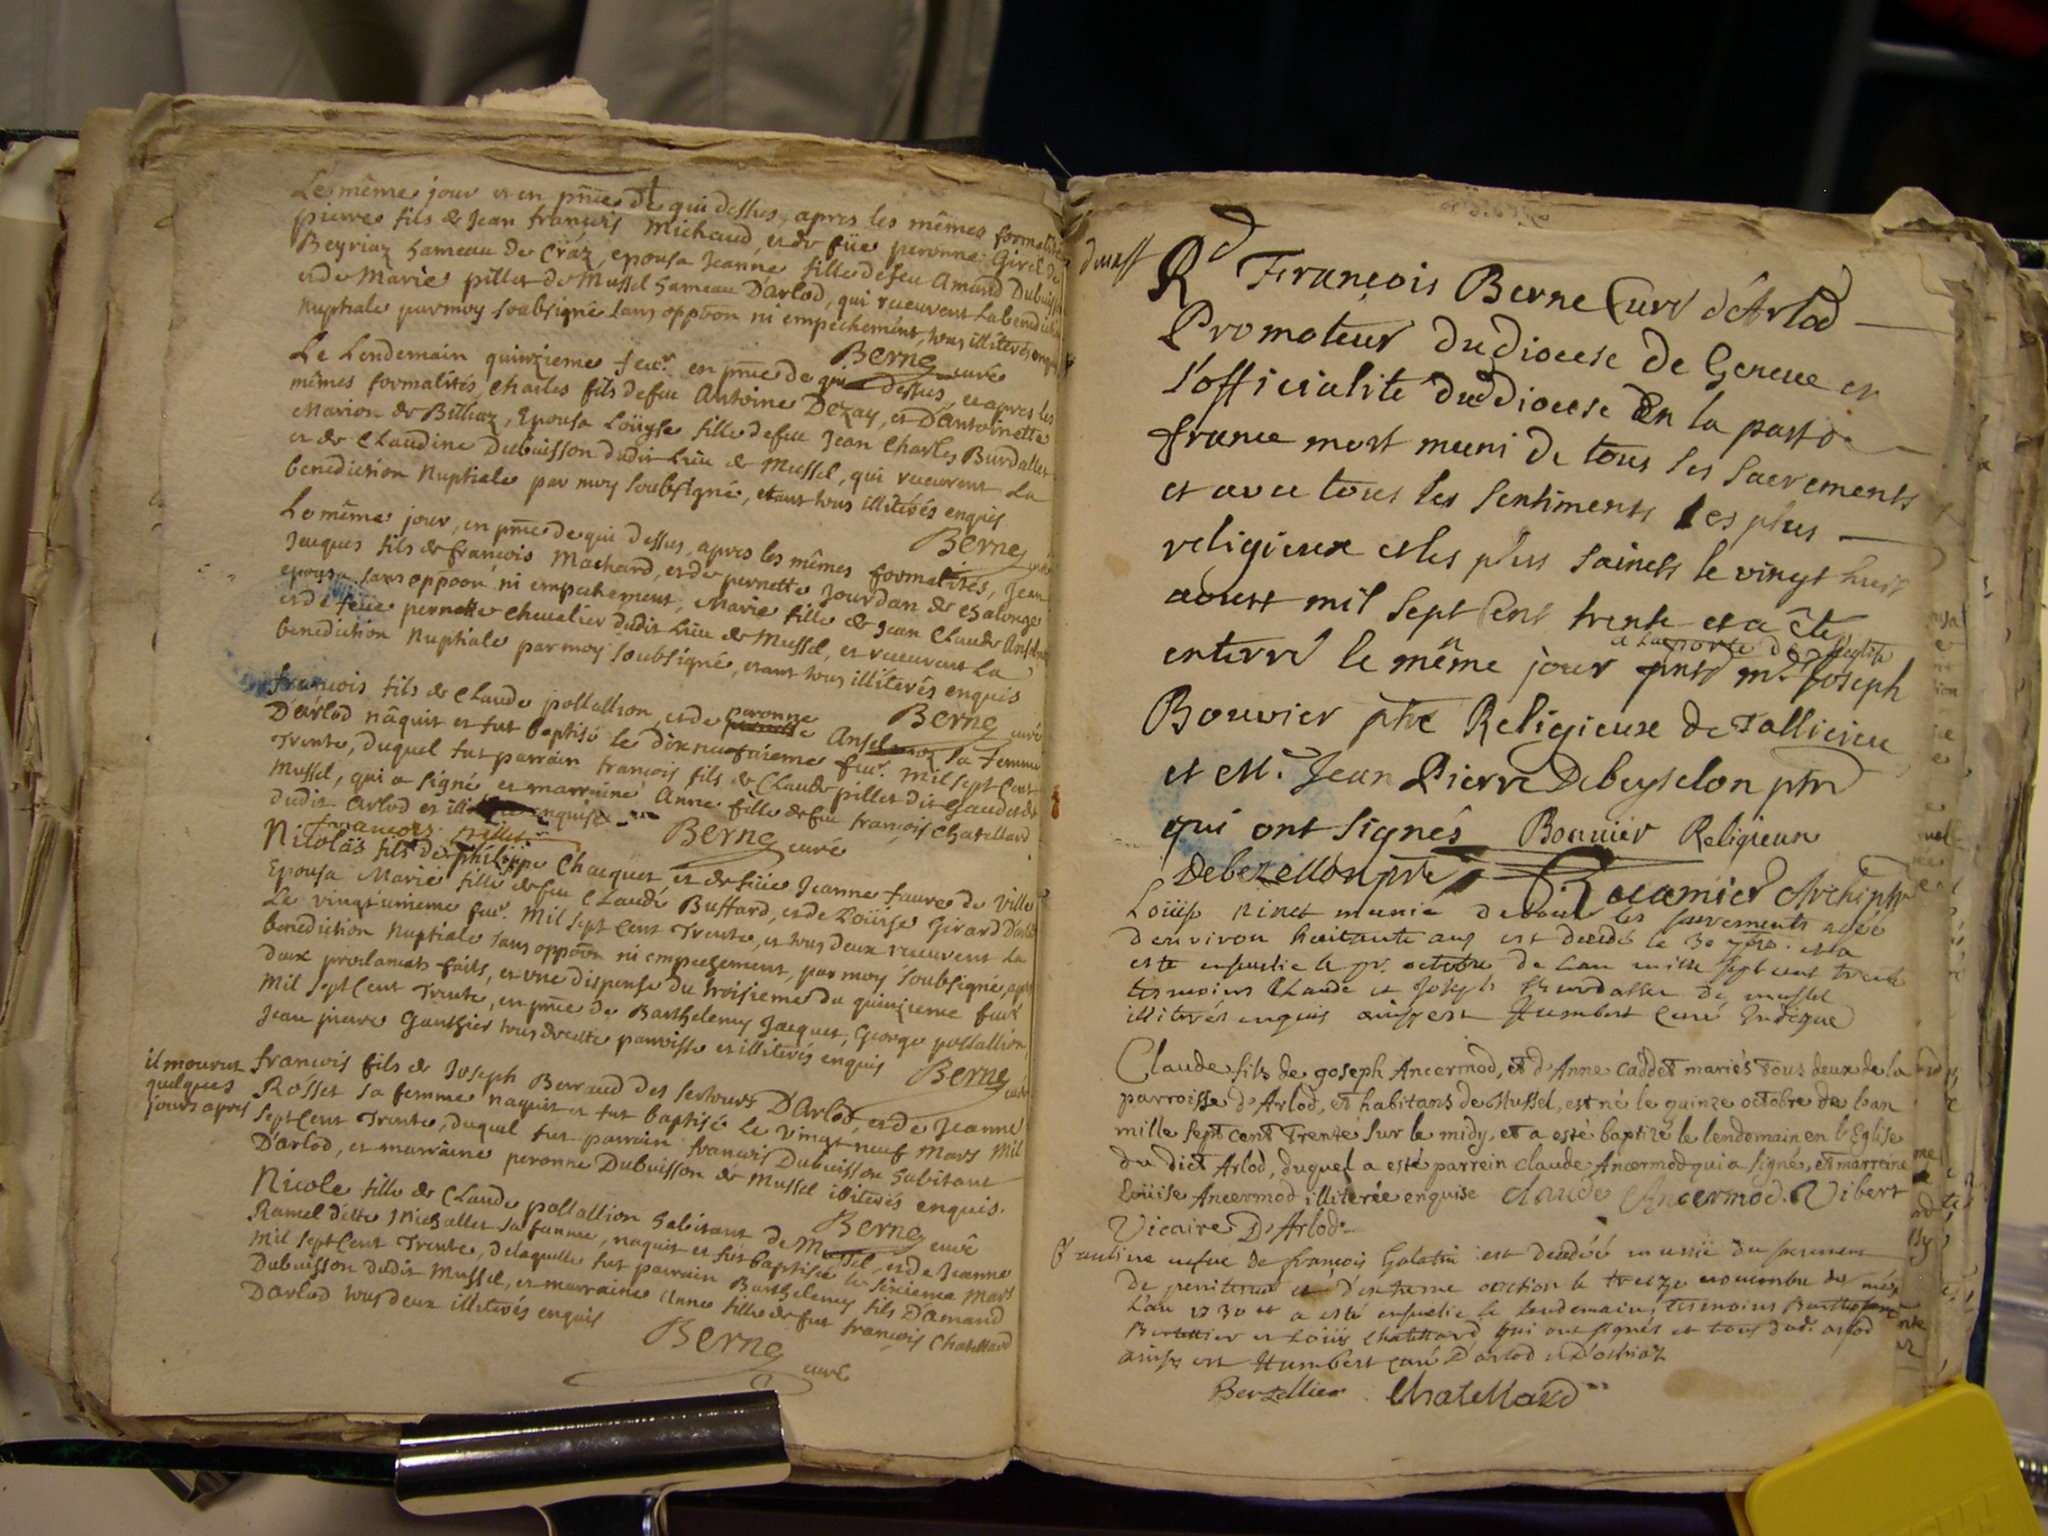 Le même jour et en pñce de qui dessus, apres les mêmes formalités
pierre fils de Jean françois Michaud, et de füe peronne Girel de
Beyriaz hameau de Craz, epousa Jeanne fille de feu Amand Dubuisson
et de Marie pillet de Mussel hameau D'arlod, qui reçeurent La benediction
Nuptiale par moy soubsigné sans oppõon ni empechement, tous illiterés enquis
Berne curé
Le Lendemain quinzieme feur. en pñce de qui dessus, et apres les
mêmes formalités, Charles fils defeu Antoine Dezay, et D'antoinette
Marion de Billiaz, Epousa Loüyse fille defeu Jean Charles Burdallet
et de Claudine Dubuisson dudit Lieu de Mussel, qui reçeurent La
benediction Nuptiale par moy soubsigné, etant tous illiterés enquis
Berne curé
Le même jour, en pñce de qui dessus, apres les mêmes formalités, Jean
Jacques fils de françois Machard, et de pernette Jourdan de
epousa sans oppõon ni empechement, Marie fille de Jean Claude
et de feüe pernette chevalier dudit Lieu de Mussel, et reçeurent La
benediction Nuptiale par moy soubsigné, etant tous illiterés enquis
Berne curé
françois fils de Claude postallion, et de peronne Anselmoz sa femme
D'arlod nâquit et fut baptisé le dixneufuieme feur. mil sept Cent
Trente, duquel fut parrain françois fils de Claude pillet dit Gaudet de
Mussel, qui a signé et marraine Anne fille de feu françois Chatillard
dudit Arlod et enquise
françois pillet Berne curé
Nicolas fils de philippe Chacquet et de füe Jeanne faure de Ville
Epousa Marie fille de feu Claude Buffard, et de Loüise Girard D'arlod
Le vingtunieme feur. Mil sept Cent Trente, et tous deux reçeurent La
benediction Nuptiale sans oppõon ni empechement, par moy soubsigné, apres
deux proclamats faits, et une dispense du troisieme du quinzieme feur
Mil sept Cent Trente, en pñce de Barthelemy Jacquet, George postallion,
Jean pierre Gauthier tous de cette parroisse et illiterés enquis
Berne curé
il mourut
quelques
jours apres
françois fils de Joseph Berraud des sertours D'Arlod, et de Jeanne
Rosset sa femme naquit et fut baptisé Le vingt neuf Mars Mil
Sept Cent Trente, duquel fut parrain françois Dubuisson habitant
D'arlod, et marraine peronne Dubuisson de Mussel illiterés enquis.
Berne curé
Nicole fille de Claude postallion habitant de Mussel, et de Jeanne
Ramel ditte sa femme, naquit et fut baptisée le Mars
Mil Sept Cent Trente, delaquelle fut parrain Barthelemy fils D'amand
Dubuisson dudit Mussel, et marraine Anne fille de feu françois Chatillard
Darlod tous deux illiterés enquis
Berne curé
Rd François Berne Curé d'Arlod
Promoteur du diocese de Geneve et
l'officialité du diocese En la part de
france mort muni de tous ses sacrements
et avec tous les sentiments les plus
religieux et les plus saincts le vingt huit
aoust mil sept Cent trente et a êté
a la porte de l'eglise
enterré le même jour pnts mre Joseph
Bouvier ptre Religieux de Tallieieu
et Mr. Jean Pierre Debeyselon ptre
qui ont signés Bouvier Religieux
Debezellon ptre Recamier Archiptre
Loüise pinet munie de tous les sacrements agée
denviron huitante ans est decedé le 30 7bre. et a
esté ensevelie le pr. octobre de Lan mille sept cent trente
tesmoins Claude et Joseph Burdallet de mussel
illiterés enquis ainsy est Humbert Curé
Claude fils de Joseph Ancermod, et d'Anne Caddet mariés tous deux de la
parroisse d'Arlod, et habitans de Mussel, est né le quinze octobre de l'an
mille sept cent trente sur le midy, et a esté baptizé le lendemain en l'Eglise
du dict Arlod, duquel a esté parrein Claude Ancermod qui a signé, et marreine
Loüise Ancermod illiterée enquise Claude Ancermod. Vibert
Vicaire D'Arlod
veufue de françois Galatin est decedée munie du sacrement
de penitence et d'extreme onction le treize novembre de
L'an 1730 et a esté ensevelie le lendemain, tesmoins
Bertellier et Loüis Chatellard qui ont signés et tous dud. arlod
ainsy est Humbert Curé D'arlod
Berzellier Chatellard